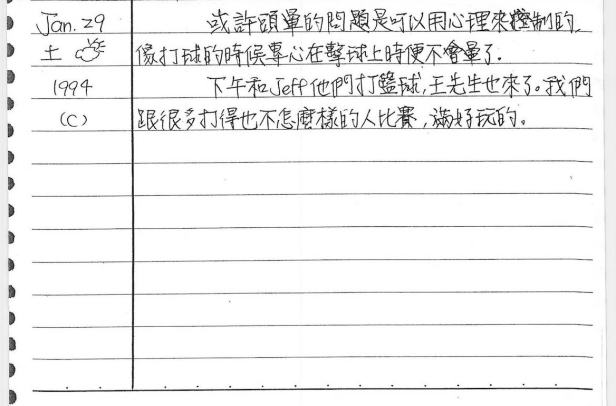 Jan. 29 或許頭暈的問題是可以用心理來控制的,
土 像打球的時候專心在擊球上時便不會暈了.
1994 下午和Jeff他們打籃球,王先生也來了。我們
(C) 跟很多打得也不怎麼樣的人比賽,滿好玩的。